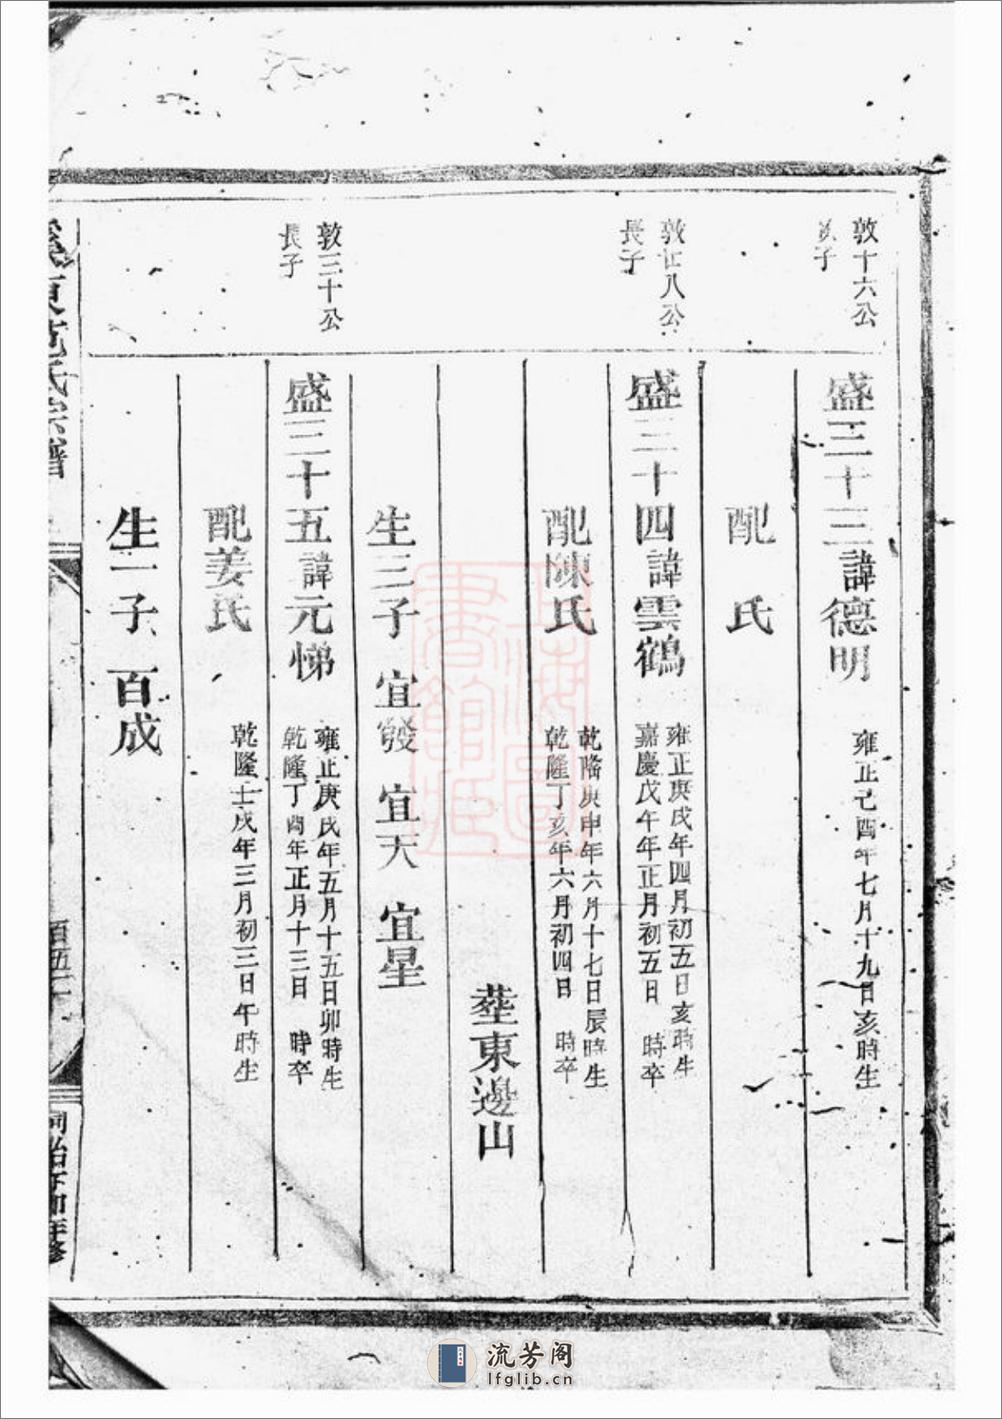 敦十六公
次子
盛三十三諱德明
雍正己酉年七月十九日亥時生
配 氏
敦廿八公
長子
盛三十四諱雲鶴
雍正庚戌年四月初五日亥時生
嘉慶戊午年正月初五日 時卒
配陳氏
乾隆庚申年六月十七日辰時生
乾隆丁亥年六月初四日 時卒
塟東邊山
生三子 宜發 宜天 宜星
敦三十公
長子
盛三十五諱元悌
雍正庚戌年五月十五日卯時生
乾隆丁酉年正月十三日 時卒
配姜氏
乾隆壬戌年三月初三日午時生
生一子 百成
東范氏宗譜
百五十
同治丁卯年修
上海圖書館藏
流芳阁
lfglib.cn